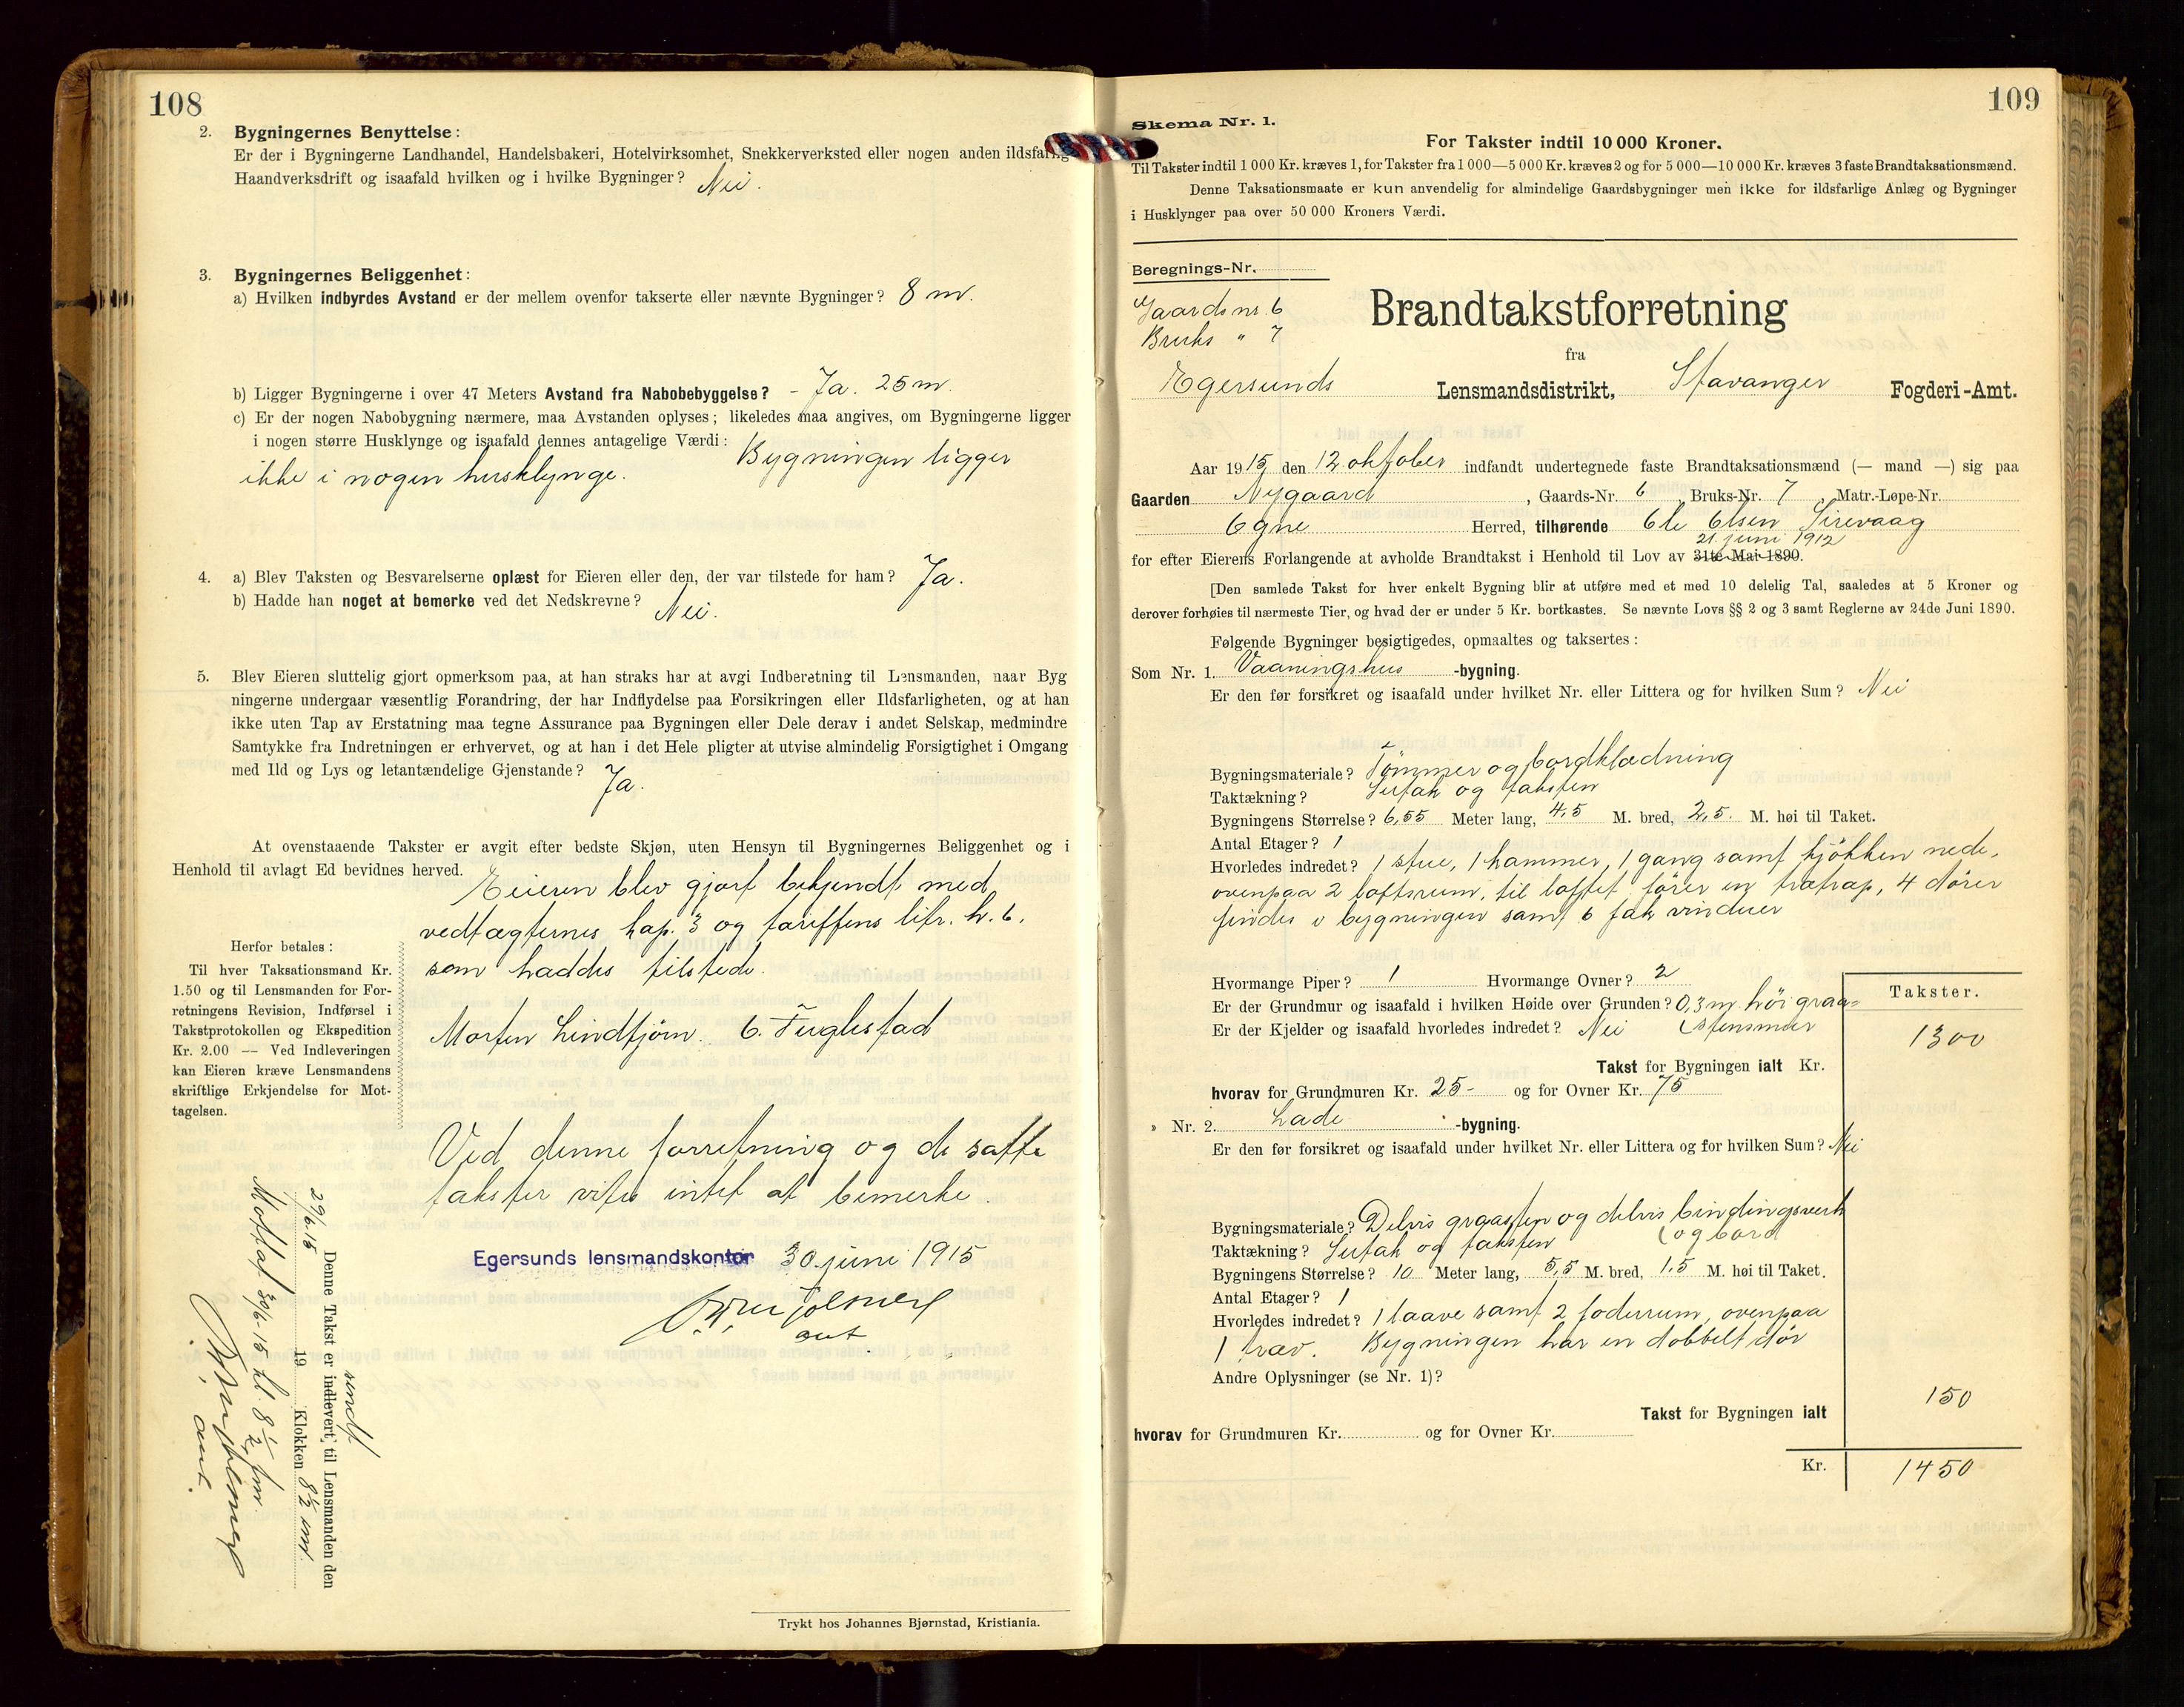 108
2. Bygningernes Benyttelse:
Er der i Bygningerne Landhandel, Handelsbakeri, Hotelvirksomhet, Snekkerverksted eller nogen anden ildsfarlig
Haandverksdrift og isaafald hvilken og i hvilke Bygninger? Nei.
3. Bygningernes Beliggenhet:
a) Hvilken indbyrdes Avstand er der mellem ovenfor takserte eller nævnte Bygninger? 8 m.
b) Ligger Bygningerne i over 47 Meters Avstand fra Nabobebyggelse? - Ja. 25 m.
c) Er der nogen Nabobygning nærmere, maa Avstanden oplyses; likeledes maa angives, om Bygningerne ligger
i nogen større Husklynge og isaafald dennes antagelige Værdi: Bygningen ligger
ikke i nogen husklynge.
4. a) Blev Taksten og Besvarelserne oplæst for Eieren eller den, der var tilstede for ham? Ja.
b) Hadde han noget at bemerke ved det Nedskrevne? Nei.
5. Blev Eieren sluttelig gjort opmerksom paa, at han straks har at avgi Indberetning til Lensmanden, naar Byg
ningerne undergaar væsentlig Forandring, der har Indflydelse paa Forsikringen eller Ildsfarligheten, og at han
ikke uten Tap av Erstatning maa tegne Assurance paa Bygningen eller Dele derav i andet Selskap, medmindre
Samtykke fra Indretningen er erhvervet, og at han i det Hele pligter at utvise almindelig Forsigtighet i Omgang
med Ild og Lys og letantændelige Gjenstande? Ja.
At ovenstaaende Takster er avgit efter bedste Skjøn, uten Hensyn til Bygningernes Beliggenhet og i
Henhold til avlagt Ed bevidnes herved.
Eieren blev gjort bekjendt med
vedtægternes kap. 3 og tariffens litr. h. 6.
som haddes tilstede.
Morten Lindtjörn. O. Fuglestad
Herfor betales:
Til hver Taksationsmand Kr.
1.50 og til Lensmanden for For-
retningens Revision, Indførsel i
Takstprotokollen og Ekspedition
Kr. 2.00 — Ved Indleveringen
kan Eieren kræve Lensmandens
skriftlige Erkjendelse for Mot-
tagelsen.
Ved denne forretning og de satte
takster vites intet at bemerke.
Egersunds lensmandskontor 30. juni 1915
aut
sendt
Denne Takst er indlevert til Lensmanden den
29/6.15 19 Klokken 8½ em.
Mottat 30/6-15 kl. 8½ fm.
aut.
Trykt hos Johannes Bjørnstad, Kristiania.
109
Skema Nr. 1.
For Takster indtil 10 000 Kroner.
Til Takster indtil 1 000 Kr. kræves 1, for Takster fra 1 000—5 000 Kr. kræves 2 og for 5 000—10 000 Kr. kræves 3 faste Brandtaksationsmænd.
Denne Taksationsmaate er kun anvendelig for almindelige Gaardsbygninger men ikke for ildsfarlige Anlæg og Bygninger
i Husklynger paa over 50 000 Kroners Værdi.
Beregnings-Nr.
Gaards nr. 6
Bruks " 7
Brandtakstforretning
fra
Egersunds Lensmandsdistrikt, Stavanger Fogderi-Amt.
Aar 1915 den 12 oktober indfandt undertegnede faste Brandtaksationsmænd (— mand —) sig paa
Gaarden Nygaard, Gaards-Nr. 6, Bruks-Nr. 7, Matr.-Løpe-Nr.
Ogne Herred, tilhørende Ole Olsen Sirevaag
21 juni 1912
for efter Eierens Forlangende at avholde Brandtakst i Henhold til Lov av 31te Mai 1890.
[Den samlede Takst for hver enkelt Bygning blir at utføre med et med 10 delelig Tal, saaledes at 5 Kroner og
derover forhøies til nærmeste Tier, og hvad der er under 5 Kr. bortkastes. Se nævnte Lovs §§ 2 og 3 samt Reglerne av 24de Juni 1890.
Følgende Bygninger besigtigedes, opmaaltes og taksertes:
Som Nr. 1. Vaaningshus -bygning.
Er den før forsikret og isaafald under hvilket Nr. eller Littera og for hvilken Sum? Nei
Bygningsmateriale? Tömmer og bordklædning
Taktækning? Sutak og taksten
Bygningens Størrelse? 6,55 Meter lang, 4,5 M. bred, 2,5. M. høi til Taket.
Antal Etager? 1
Hvorledes indredet? 1 stue, 1 kammer, 1 gang samt kjökken nede,
ovenpaa 2 loftsrum, til loftet förer en trætrap, 4 dörer
findes i bygningen samt 6 fak vinduer
Hvormange Piper? 1 Hvormange Ovner? 2
Takster.
Er der Grundmur og isaafald i hvilken Høide over Grunden? 0,3 m. höi graa=
Er der Kjelder og isaafald hvorledes indredet? Nei (stensmur
1300
Takst for Bygningen ialt Kr.
hvorav for Grundmuren Kr. 25- og for Ovner Kr. 75
» Nr. 2. Lade -bygning.
Er den før forsikret og isaafald under hvilket Nr. eller Littera og for hvilken Sum? Nei
Bygningsmateriale? Delvis graasten og delvis bindingsverk
Taktækning? Sutak og taksten (og bord
Bygningens Størrelse? 10 Meter lang, 5,5 M. bred, 1.5 M. høi til Taket.
Antal Etager? 1
Hvorledes indredet? 1 laave samt 2 foderrum, ovenpaa
1 træv. Bygningen har en dobbelt dör
Andre Oplysninger (se Nr. 1)?
150
Takst for Bygningen ialt
hvorav for Grundmuren Kr. og for Ovner Kr.
Kr. 1450